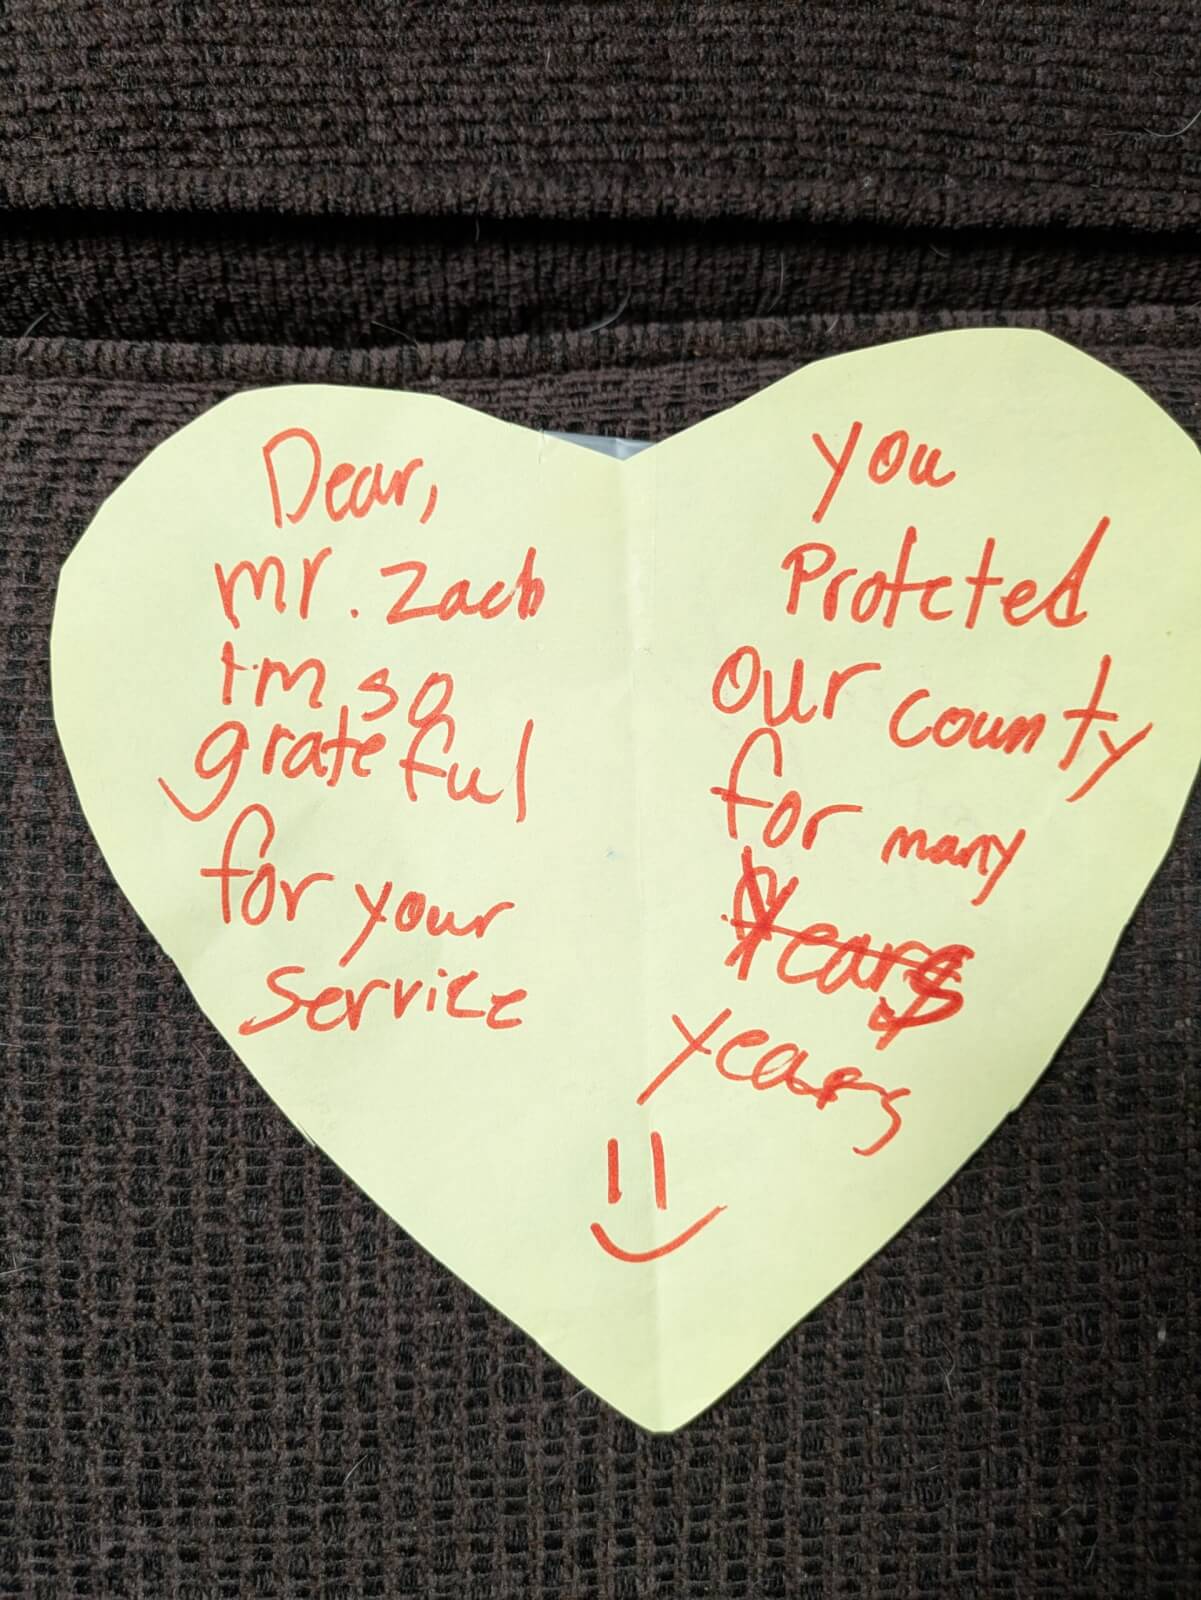 Dear,
mr. Zach
I'm so
grateful
for your
service
you
Protcted
Our county
for many
years
years